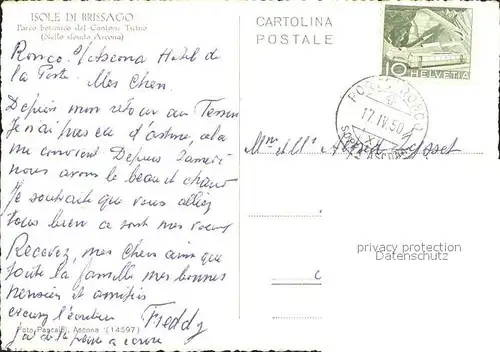 ISOLE DI BRISSAGO
Parco botanico del Cantone Ticino
(Nello sfondo Ascona)
CARTOLINA
POSTALE
10 HELVETIA
PORTO RONCO
17.IV.50
SOPRA ASCONA
Ronco s/Ascona Hotel de
la Poste. Mes Chers.
Depuis mon retour au Tessin
Je n'ai pas eu d'asthme, cela
me convient Depuis Samedi
nous avons le beau et chaud
Je souhaite que vous alliez
tous bien ce sont mes vœux
Recevez, mes Chers ainsi que
toute la famille mes bonnes
pensées et amitiés
Freddy
j'ai de la peine a écrire
Mme et Mr Alfred
privacy protection
Datenschutz
Foto Pancaldi, Ascona (14597)